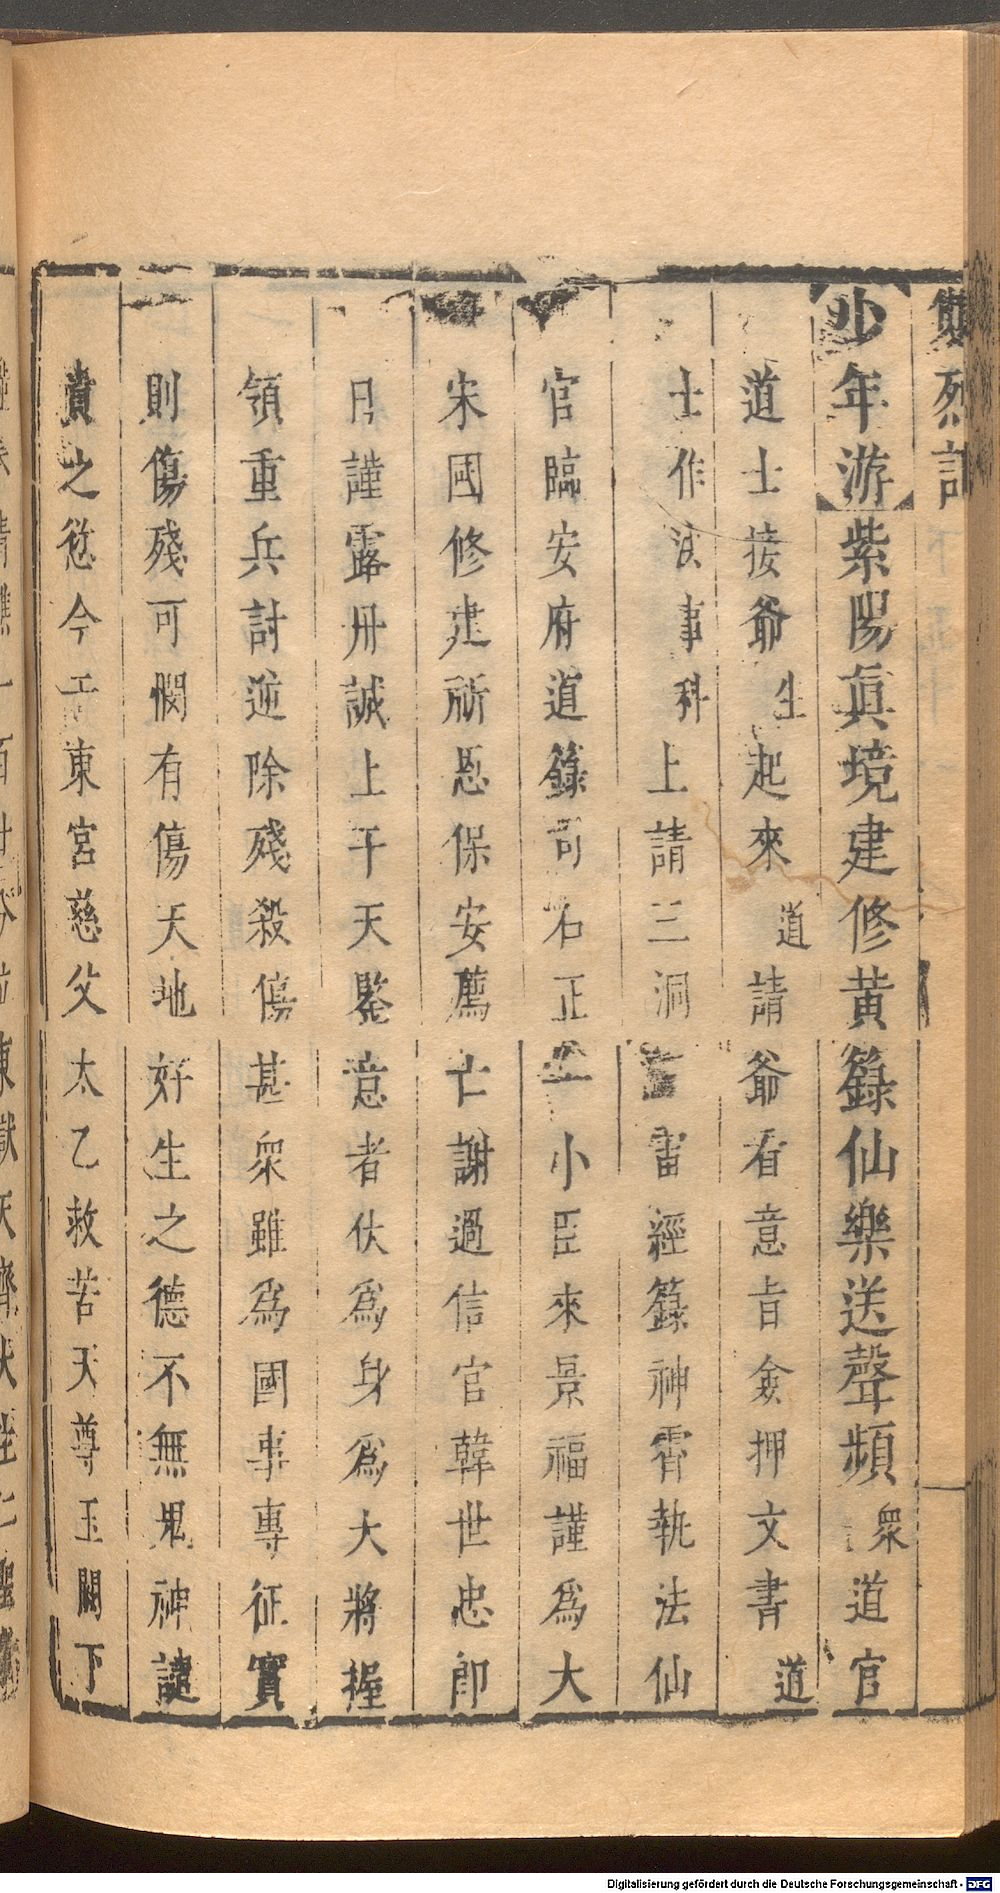 雙烈記
少年游紫陽眞境建修黃籙仙樂送聲頻衆道官
道士接爺生起來道請爺看意旨僉押文書道
士作法事科上請三洞雷經籙神霄執法仙
官臨安府道籙司右正一小臣來景福謹爲大
宋國修建祈恩保安薦亡謝過信官韓世忠卽
日謹露丹誠上干天鑒意者伏爲身爲大將握
領重兵討逆除殘殺傷甚衆雖爲國事專征實
則傷殘可憫有傷天地好生之德不無鬼神譴
責之愆今于東宮慈父太乙救苦天尊玉闕下
Digitalisierung gefördert durch die Deutsche Forschungsgemeinschaft - DFG